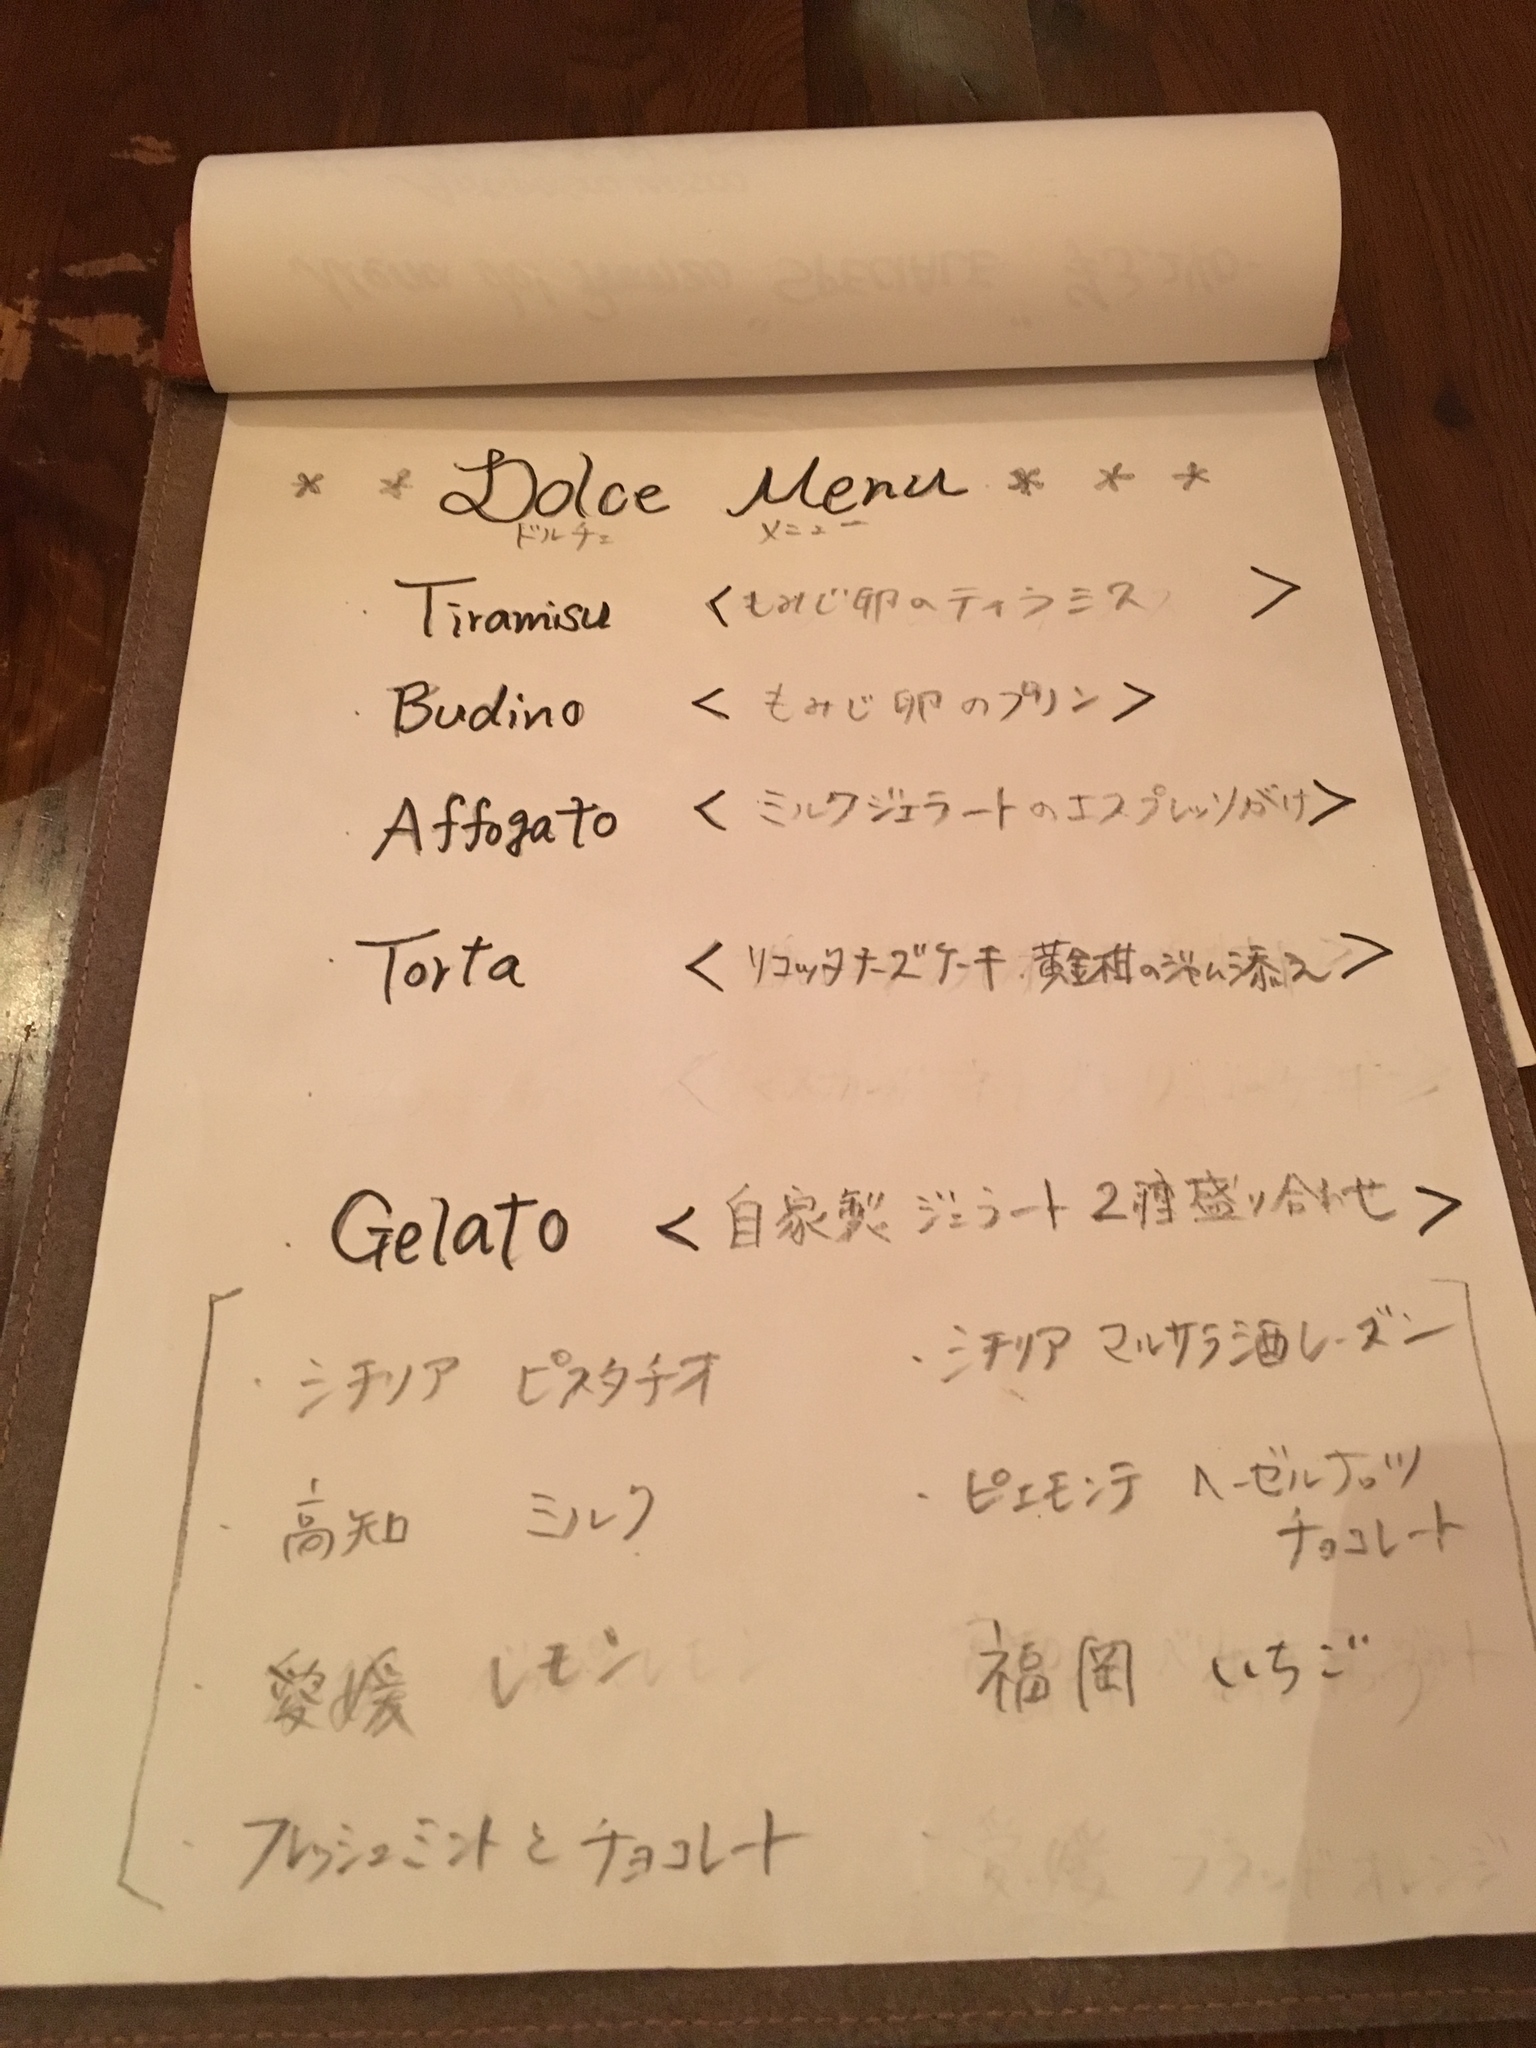 * * Dolce Menu * * *
ドルチェ メニュー
・Tiramisu <もみじ卵のティラミス>
・Budino <もみじ卵のプリン>
・Affogato <ミルクジェラートのエスプレッソがけ>
・Torta <リコッタチーズケーキ 黄金柑のジャム添え>
・Gelato <自家製 ジェラート 2種盛り合わせ>
・シチリア ピスタチオ
・シチリア マルサラ酒レーズン
・高知 ミルク
・ピエモンテ ヘーゼルナッツ
チョコレート
・愛媛 レモン
福岡 いちご
・フレッシュミントとチョコレート
・愛媛 ブラッドオレンジ